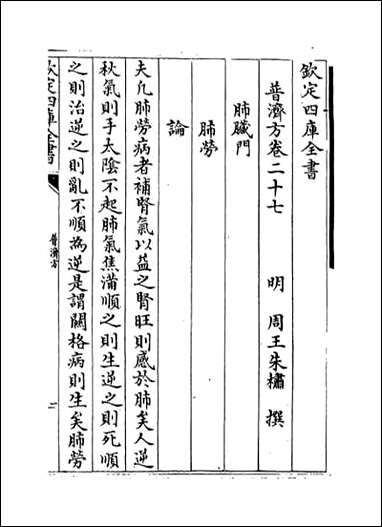 欽定四庫全書
普濟方卷二十七　明　周王朱橚　撰
肺臟門
肺勞
論
夫凡肺勞病者補腎氣以益之腎旺則感於肺矣人逆
秋氣則手太陰不起肺氣焦滿順之則生逆之則死順
之則治逆之則亂不順為逆是謂關格病則生矣肺勞
欽定四庫全書
普濟方